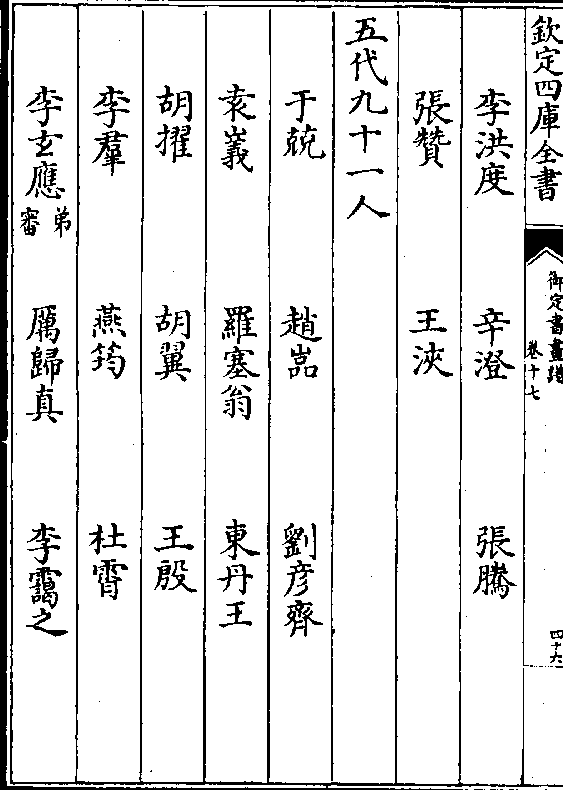 欽定四庫全書
御定書畫譜
卷十七
四十六
李洪度 辛澄 張騰
張贊 王浹
五代九十一人
于兢 趙嵓 劉彥齊
袁嶬 羅塞翁 東丹王
胡擢 胡翼 王殷
李羣 燕筠 杜霄
李玄應弟審 厲歸真 李靄之